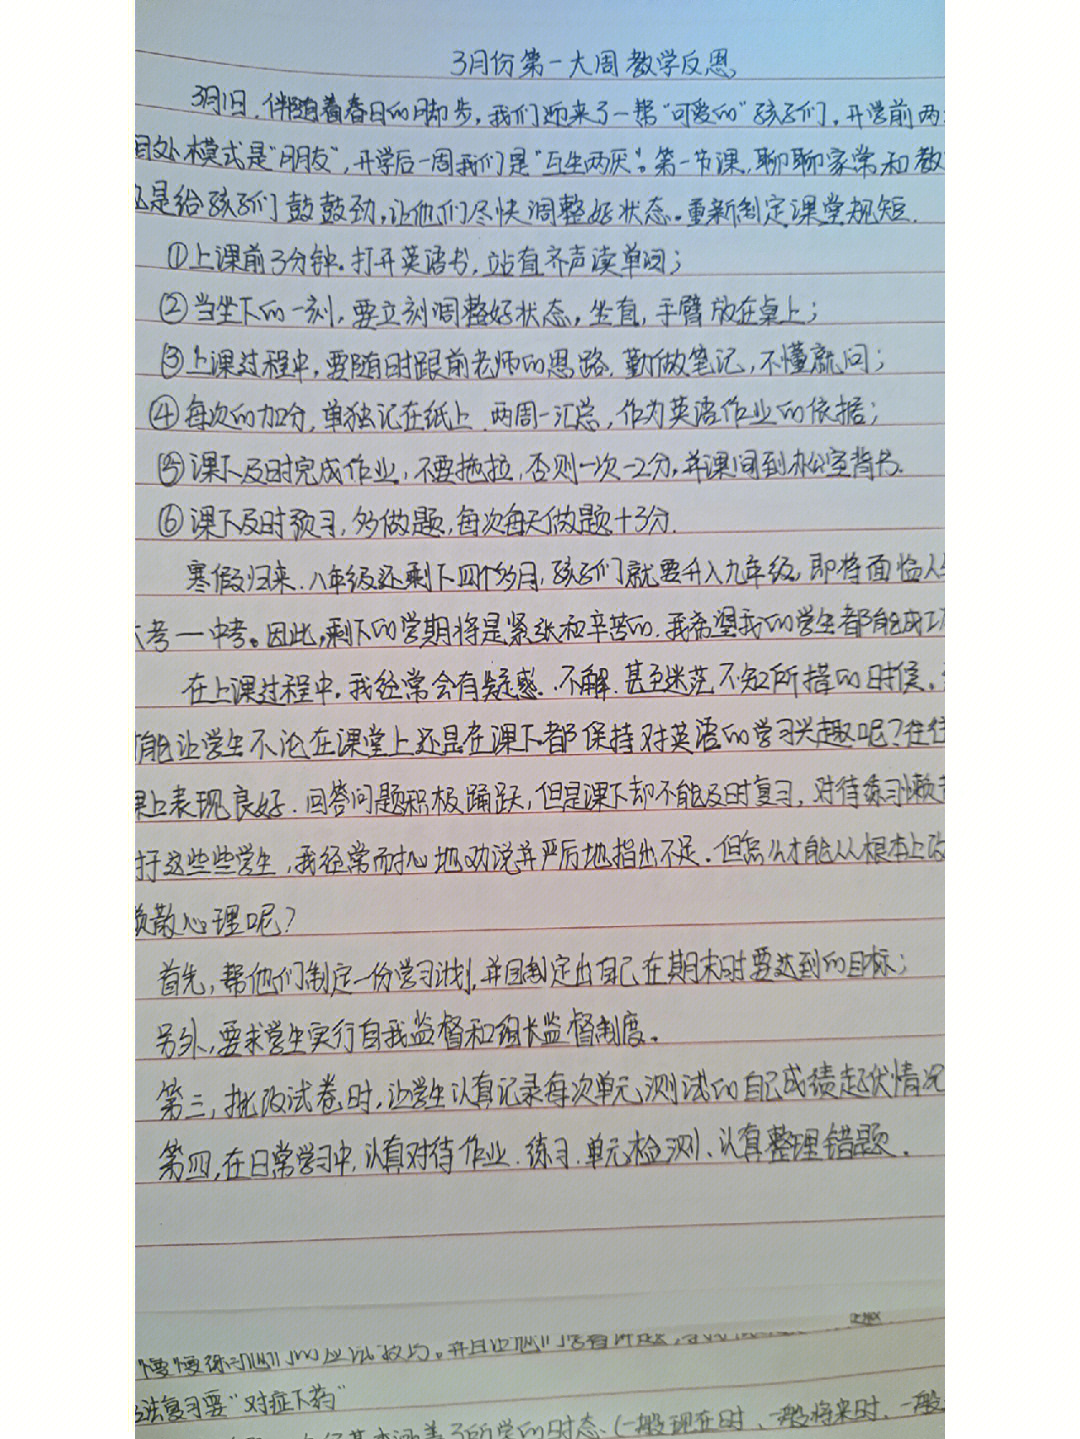 3月份第一大周教学反思
3月1日，伴随着春日的脚步，我们迎来了一帮"可爱的"孩子们，开学前两
相处模式是"朋友"，开学后一周我们是"互生两厌"。第一节课，聊聊家常和教
是给孩子们鼓鼓劲，让他们尽快调整好状态。重新制定课堂规短．
①上课前3分钟．打开英语书，站直齐声读单词；
②当坐下的一刻，要立刻调整好状态，坐直，手臂放在桌上；
③上课过程中，要随时跟前老师的思路，勤做笔记，不懂就问；
④每次的加分，单独记在纸上．两周一汇总，作为英语作业的依据；
⑤课下及时完成作业，不要拖拉，否则一次-2分，并课间到办公室背书．
⑥课下及时预习，多做题，每次每天做题+3分．
寒假归来，八年级还剩下四个多月，孩子们就要升入九年级，即将面临人
大考一中考。因此，剩下的学期将是紧张和辛苦的．我希望我的学生都能成功
在上课过程中．我经常会有疑惑．不解．甚至迷茫不知所措的时候，
能让学生不论在课堂上还是在课下都保持对英语的学习兴趣呢？往往
课上表现良好．回答问题积极踊跃，但是课下却不能及时复习，对待练习懒
对于这些些学生，我经常耐心地劝说并严厉地指出不足．但怎么才能从根本上改
懒散心理呢？
首先，帮他们制定一份学习计划，并且制定出自己在期末时要达到的目标；
另外，要求学生实行自我监督和组长监督制度。
第三，批改试卷时，让学生认真记录每次单元测试的自己成绩起伏情况
第四，在日常学习中，认真对待作业．练习．单元检测、认真整理错题．
法复习要"对症下药"
了所学的时态．(一般现在时、一般将来时、一般